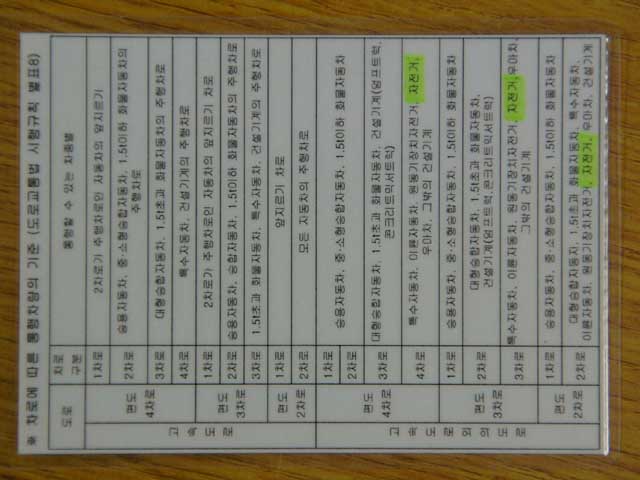 ※ 차로에 따른 통행차량의 기준 (도로교통법 시행규칙 별표8)
도로 차로 구분 통행할 수 있는 차종별
고속도로
편도 4차로
1차로 2차로가 주행차로인 자동차의 앞지르기
2차로 승용자동차, 중·소형승합자동차, 1.5t이하 화물자동차의
주행차로
3차로 대형승합자동차, 1.5t초과 화물자동차의 주행차로
4차로 특수자동차, 건설기계의 주행차로
편도 3차로
1차로 2차로가 주행차로인 자동차의 앞지르기 차로
2차로 승용자동차, 승합자동차, 1.5t이하 화물자동차의 주행차로
3차로 1.5t초과 화물자동차, 특수자동차, 건설기계의 주행차로
편도 2차로
1차로 앞지르기 차로
2차로 모든 자동차의 주행차로
고속도로외의도로
편도 4차로
1차로
2차로 승용자동차, 중·소형승합자동차, 1.5t이하 화물자동차
3차로 대형승합자동차, 1.5t초과 화물자동차, 건설기계(덤프트럭,
콘크리트믹서트럭)
4차로 특수자동차, 이륜자동차, 원동기장치자전거, 자전거,
우마차, 그밖의 건설기계
편도 3차로
1차로 승용자동차, 중·소형승합자동차, 1.5t이하 화물자동차
2차로 대형승합자동차, 1.5t초과 화물자동차,
건설기계(덤프트럭,콘크리트믹서트럭)
3차로 특수자동차, 이륜자동차, 원동기장치자전거, 자전거,우마차,
그밖의 건설기계
편도 2차로
1차로 승용자동차, 중·소형승합자동차, 1.5t이하 화물자동차
2차로 대형승합자동차, 1.5t초과 화물자동차, 특수자동차,
이륜자동차, 원동기장치자전거, 자전거, 우마차, 건설기계